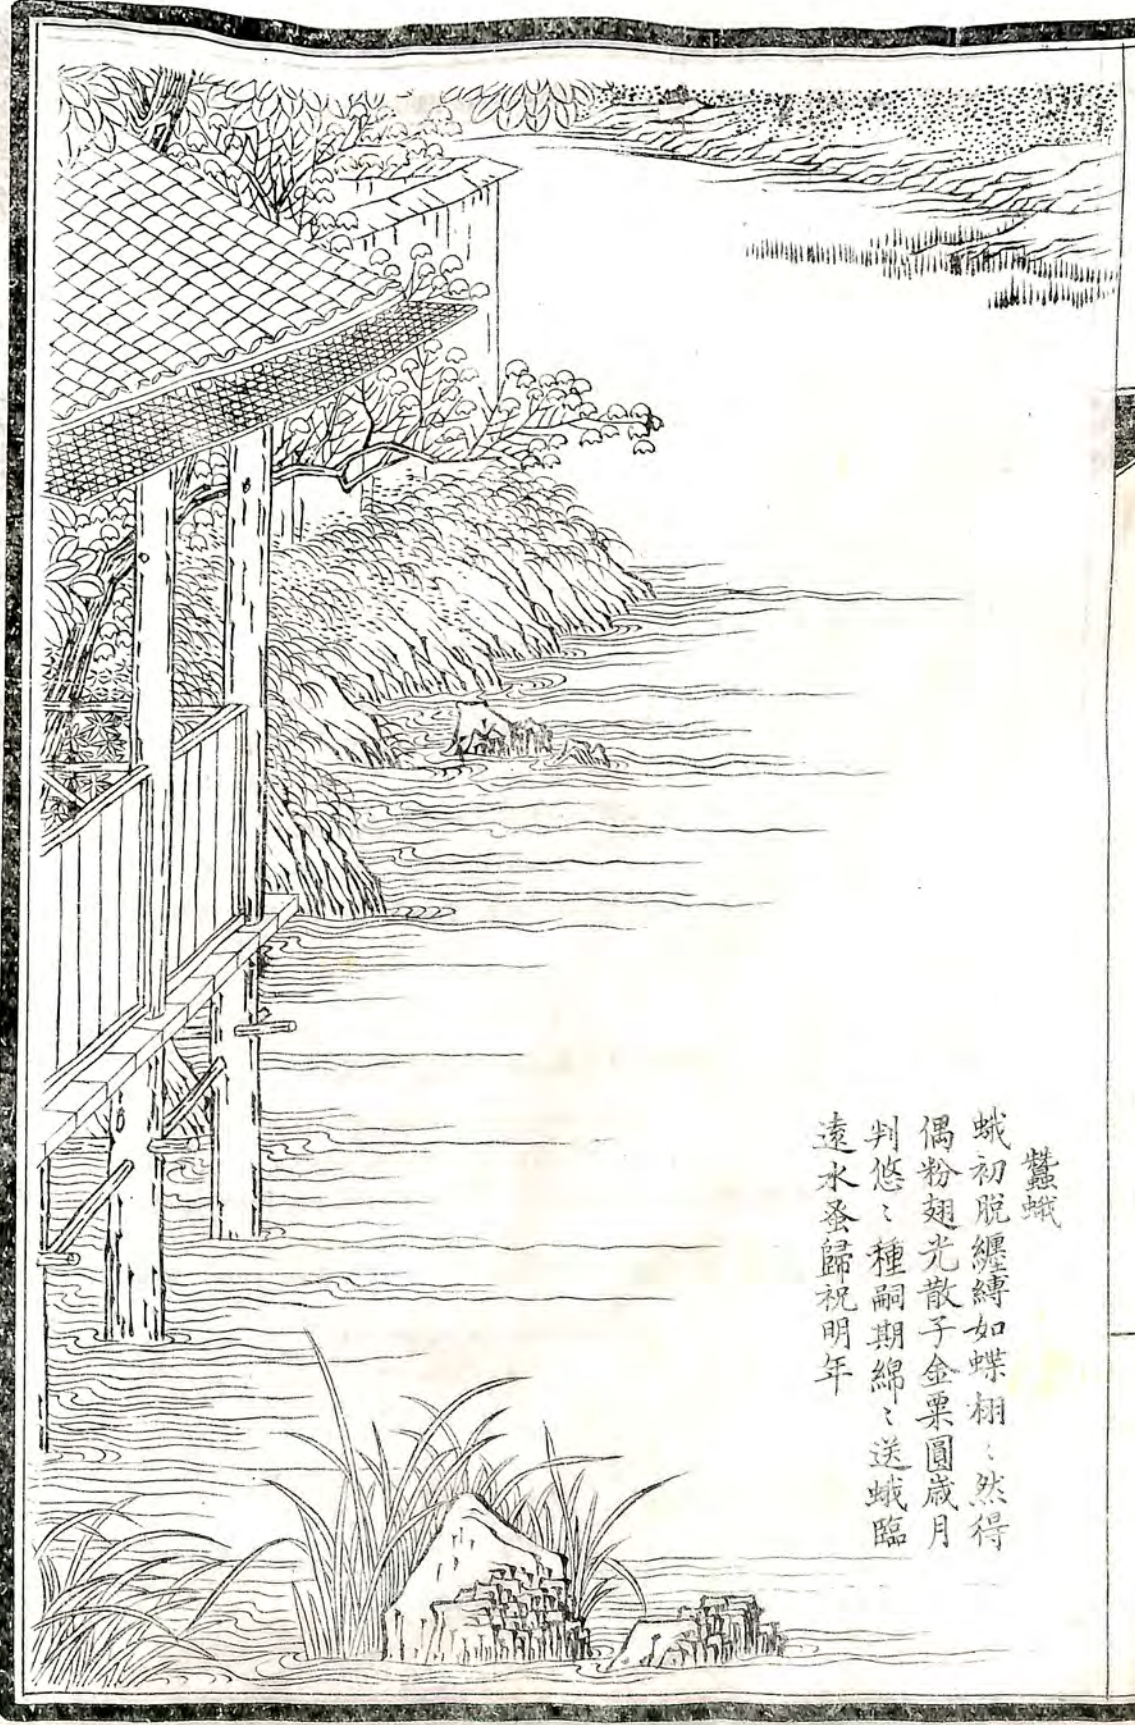 蠶蛾
蛾初脱纏縳如蝶栩〻然得
偶粉翅光散子金粟圓歲月
判悠〻種嗣期綿〻送蛾臨
遠水蚤歸祝明年